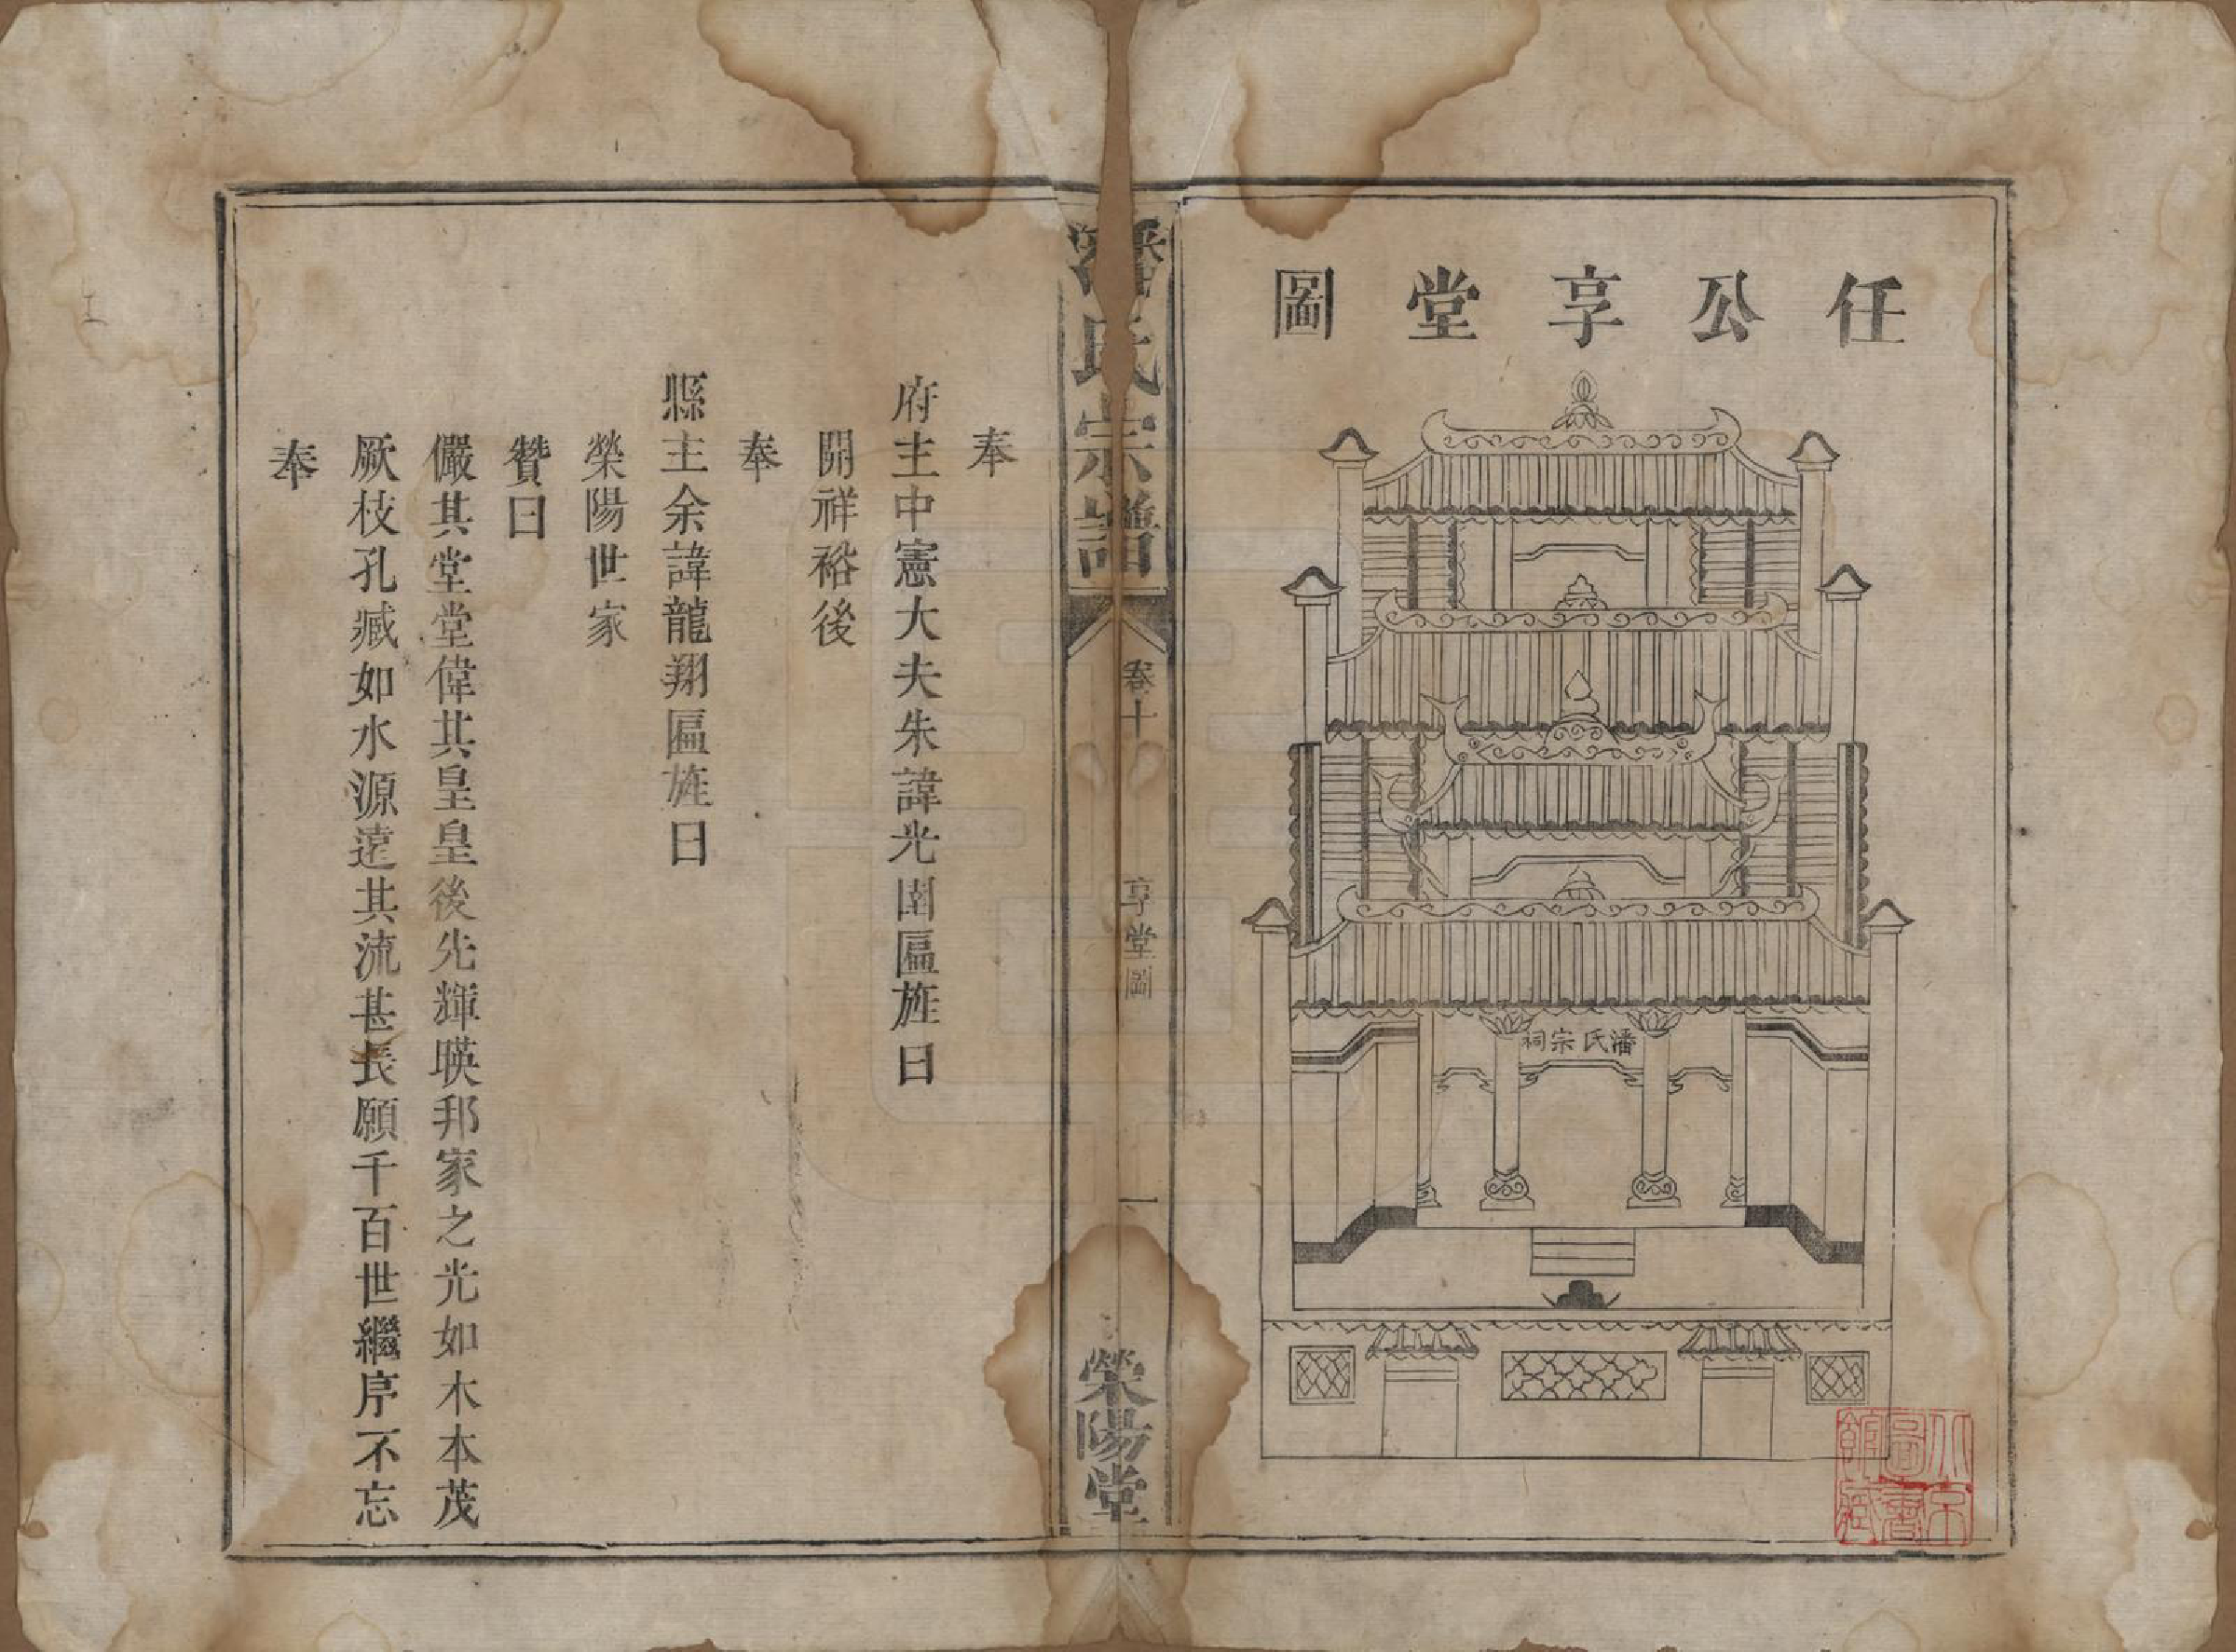 任公享堂圖
潘氏宗祠
潘氏宗譜
卷十
享堂圖
一
榮陽堂
奉
府主中憲大夫朱諱光圉匾旌曰
開祥裕後
奉
縣主余諱龍翔匾旌曰
榮陽世家
贊曰
儼其堂堂偉其皇皇後先輝暎邦家之光如木本茂
厥枝孔臧如水源逺其流甚長願千百世繼序不忘
奉
北京
圖書
館藏